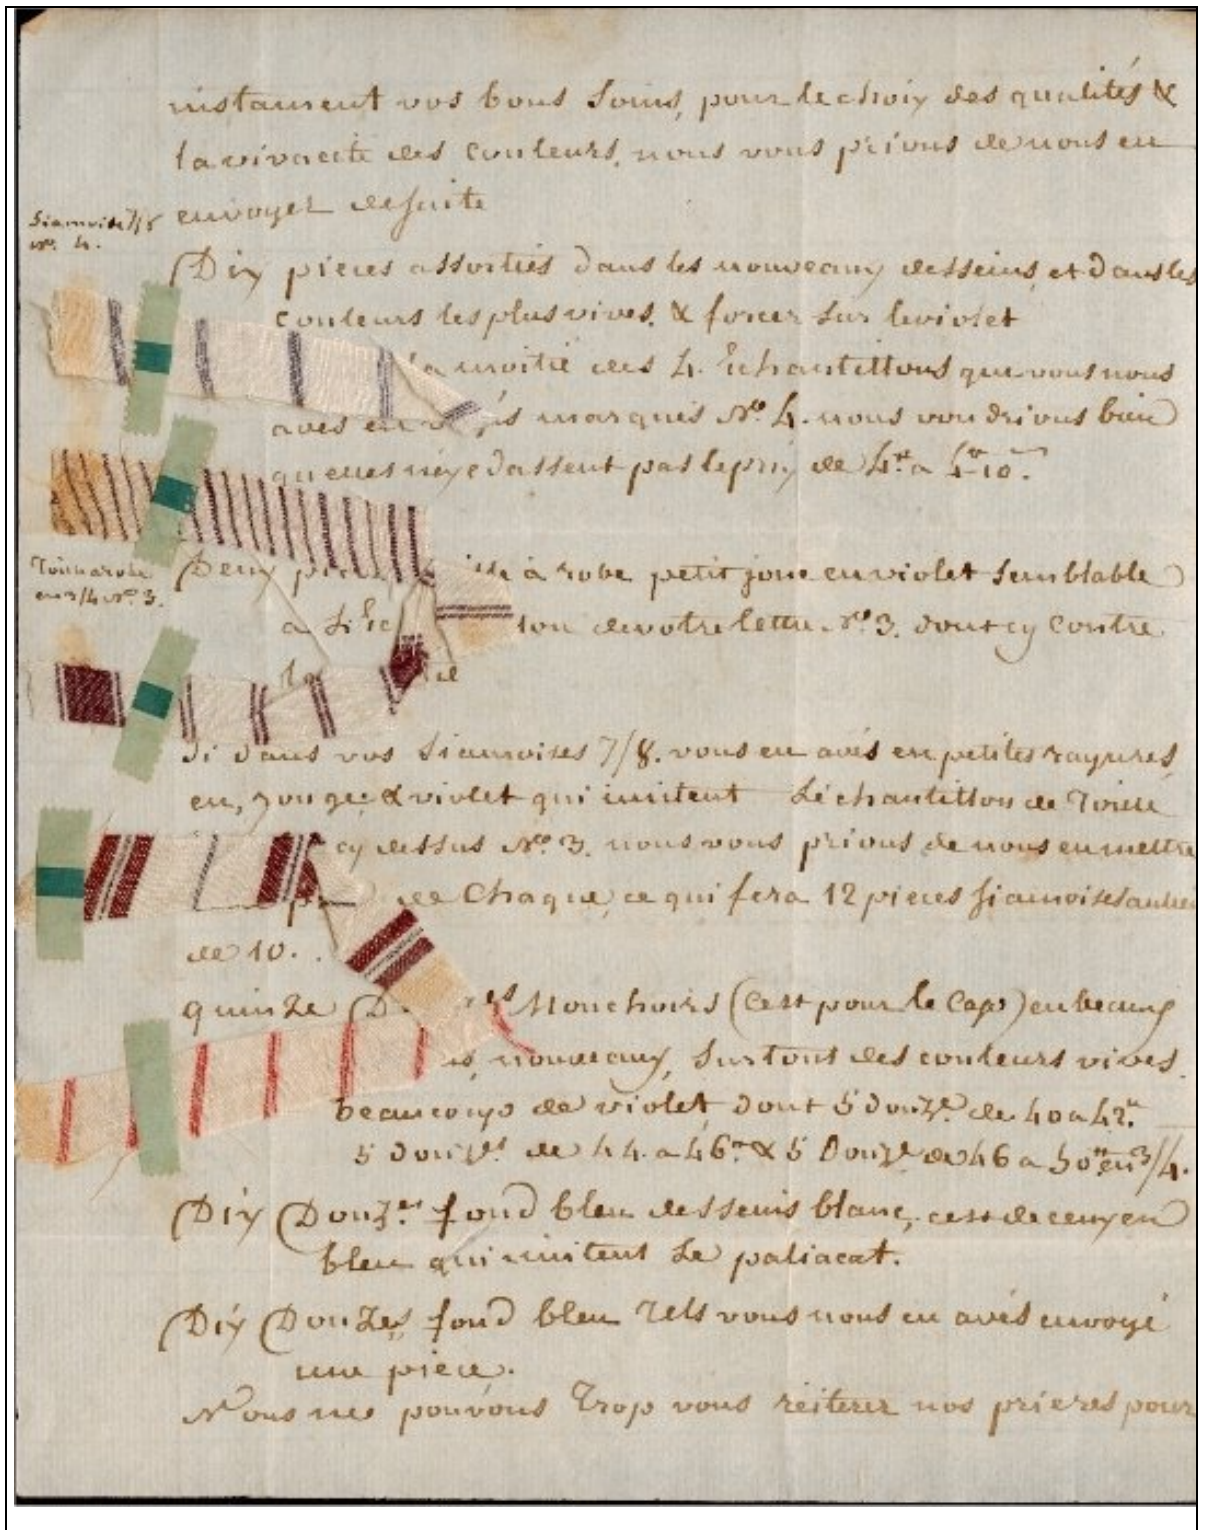 instament vos bons soins, pour le choix des qualités &
la vivacité des couleurs, nous vous prions de nous en
envoyer de suite
Siamoise 7/8
No. 4.
Dix pieces assorties dans les nouveaux desseins, et dans les
couleurs les plus vives, & forcer sur le violet
la moitié des 4. Echantillons que vous nous
avés marqués No. 4. nous voudrions bien
pas le prix de 4tt a 4tt 10s.
Toille a robe
en 3/4 No. 3.
Deux a robe petit jonc en violet semblable
a de votre lettre No. 3. dont cy contre
Si dans vos Siamoises 7/8. vous en avés en petites rayures
en, rouge & violet qui imitent L'échantillon de Toille
cy dessus No. 3. nous vous prions de nous en mettre
de Chaque, ce qui fera 12 pieces siamoises au lieu
de 10. .
quinze Mouchoirs (c'est pour le Cap) en beaux
nouveaux, surtout des couleurs vives.
beaucoup de violet, dont 5 douze. de 40 a 42tt.
5 douzes de 44. a 46tt & 5 Douze de 46 a 50tt en 3/4.
Dix Douzes fond bleu desseins blanc, c'est de ceux en
bleu qui imitent Le paliacat.
Dix Douzes, fond bleu Tels vous nous en avés envoyé
une piece.
Nous ne pouvons Trop vous réiterer nos prieres pour